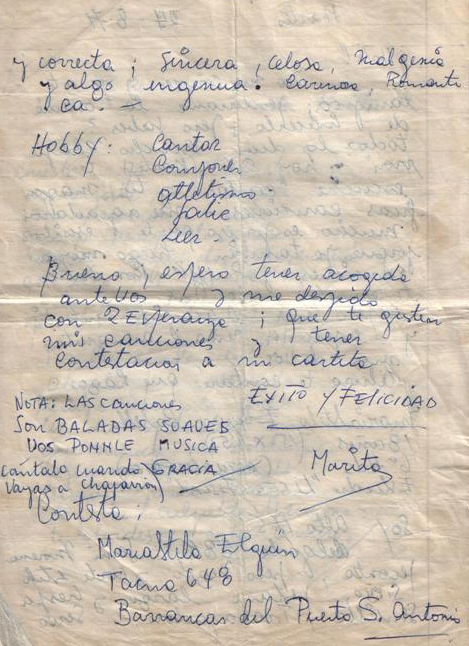 y correcta ; sincera, celosa, mal genio
y algo ingenua. Carinosa, Romanti
ca. -
HOBBY: Cantar
Componer
atletismo
Leer -
Bueno, espero tener acogida
ante Vos y me despido
con Esperanza ; que te gusten
mis canciones y tener
Contestación a mi cartita
EXITO Y FELICIDAD
NOTA: LAS canciones
Son BALADAS SUAVES
VOS PONNLE MUSICA
cántalo cuando GRACIA
Vayas a chaparron)
Marita
Contesta:
Elguin
Tacna 648
Barrancas del Puerto S. Antonio